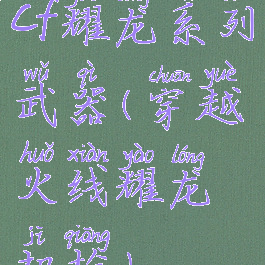 cf耀龙系列
wǔ qì chuān yuè
武器(穿越
huǒ xiàn yào lóng
火线耀龙
jī qiāng